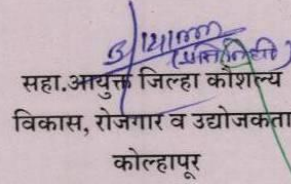 (प्रतिनिधी)
सहा.आयुक्त जिल्हा कौशल्य
विकास, रोजगार व उद्योजकता
कोल्हापूर